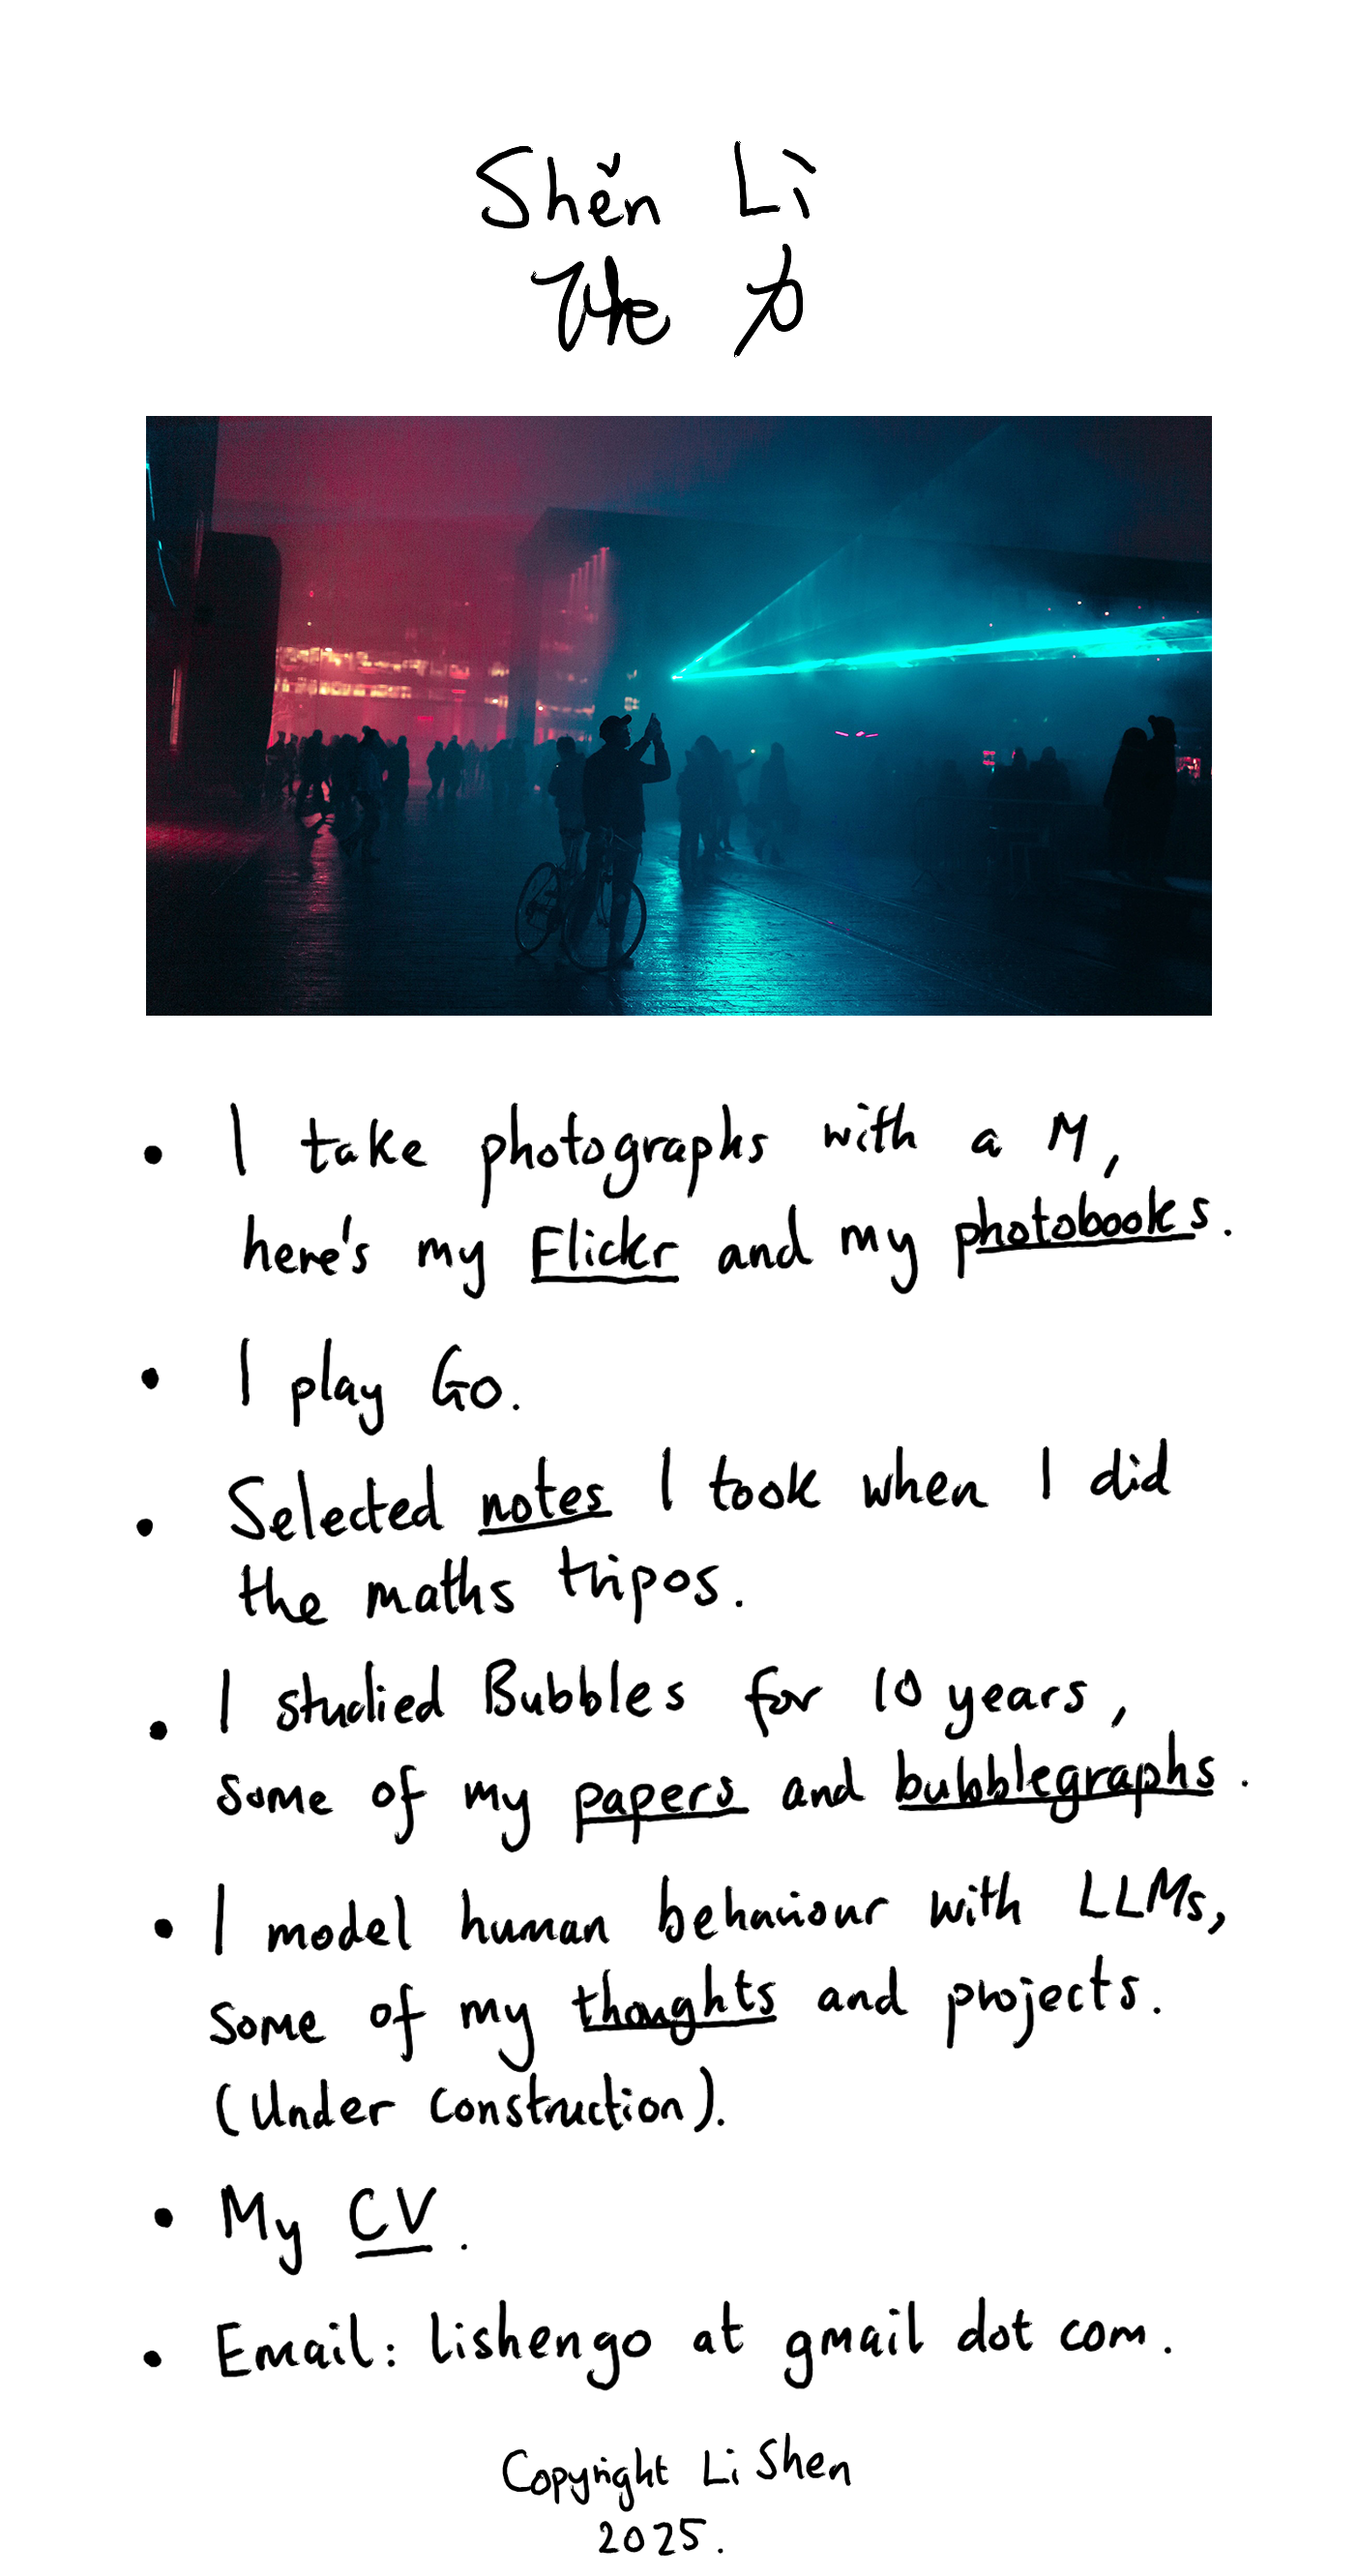 Shěn Lì
力
• I take photographs with a M,
here's my Flickr and my photobooks.
• I play Go.
• Selected notes I took when I did
the maths tripos.
• I studied Bubbles for 10 years,
some of my papers and bubblegraphs.
• I model human behaviour with LLMs,
some of my thoughts and projects.
(Under construction).
• My CV.
• Email: lishengo at gmail dot com.
Copyright Li Shen
2025.